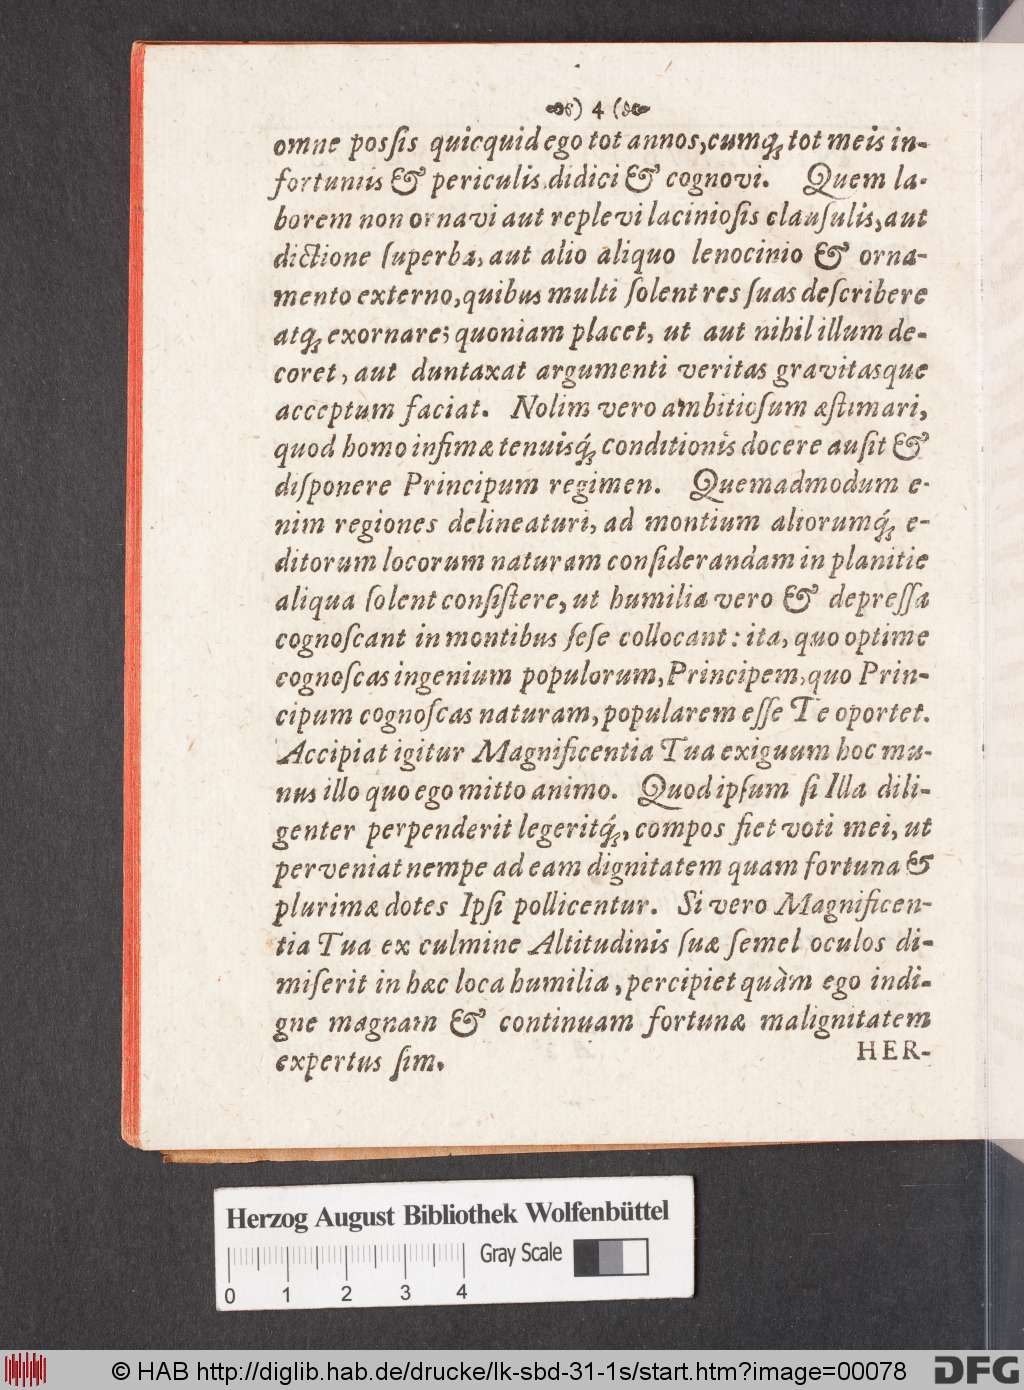 ) 4 (
omne posſis quicquid ego tot annos, cumq́; tot meis in-
fortuniis & periculis didici & cognovi. Quem la-
borem non ornavi aut replevi laciniosis clauſulis, aut
dictione ſuperba, aut alio aliquo lenocinio & orna-
mento externo, quibus multi ſolent res ſuas deſcribere
atq́; exornare; quoniam placet, ut aut nihil illum de-
coret, aut duntaxat argumenti veritas gravitasque
acceptum faciat. Nolim vero ambitioſum æſtimari,
quod homo infimæ tenuisq́; conditionis docere auſit &
diſponere Principum regimen. Quemadmodum e-
nim regiones delineaturi, ad montium aliorumq́; e-
ditorum locorum naturam conſiderandam in planitie
aliqua ſolent conſiſtere, ut humilia vero & depreſſa
cognoſcant in montibus ſeſe collocant: ita, quo optime
cognoſcas ingenium populorum, Principem, quo Prin-
cipum cognoſcas naturam, popularem eſſe Te oportet.
Accipiat igitur Magnificentia Tua exiguum hoc mu-
nus illo quo ego mitto animo. Quod ipſum ſi Illa dili-
genter perpenderit legeritq́;, compos fiet voti mei, ut
perveniat nempe ad eam dignitatem quam fortuna &
plurimæ dotes Ipſi pollicentur. Si vero Magnificen-
tia Tua ex culmine Altitudinis ſuæ ſemel oculos di-
miſerit in hæc loca humilia, percipiet quàm ego indi-
gne magnam & continuam fortunæ malignitatem
expertus ſim.
HER-
Herzog August Bibliothek Wolfenbüttel
Gray Scale
0 1 2 3 4
© HAB http://diglib.hab.de/drucke/lk-sbd-31-1s/start.htm?image=00078
DFG